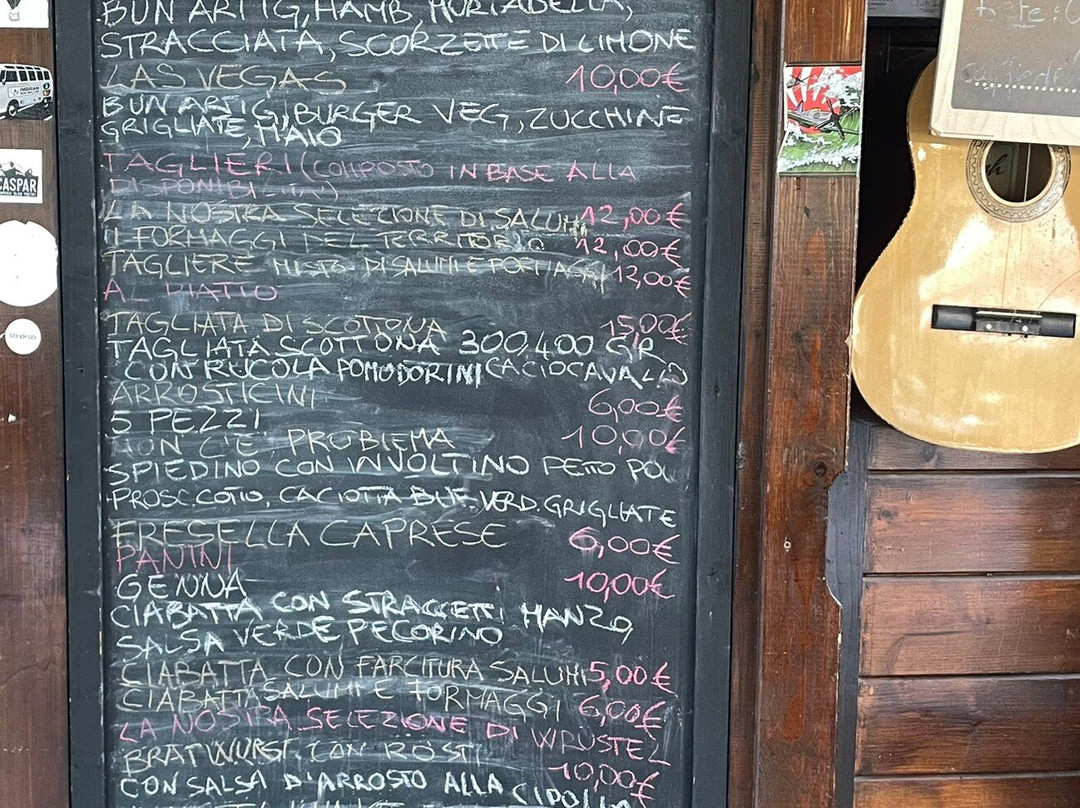 BUN ARTIG, HAMB, MORTADELLA,
STRACCIATA, SCORZETTE DI LIMONE
LAS VEGAS 10,00€
BUN ARTIG, BURGER VEG, ZUCCHINE
GRIGLIATE, MAIO
TAGLIERI (COMPOSTO IN BASE ALLA
LA NOSTRA SELEZIONE DI SALUMI 12,00€
I FORMAGGI DEL TERRITORIO 12,00€
TAGLIERE MISTO DI SALUMI E FORMAGGI 13,00€
AL PIATTO
TAGLIATA DI SCOTTONA 15,00€
TAGLIATA SCOTTONA 300,400 GR
CON RUCOLA POMODORINI CACIOCAVALLO
ARROSTICINI 6,00€
5 PEZZI
NON C'E' PROBLEMA 10,00€
SPIEDINO CON INVOLTINO PETTO
PROSC. COTTO, CACIOTTA BUF. VERD. GRIGLIATE
FRESELLA CAPRESE 6,00€
PANINI
GENNA 10,00€
CIABATTA CON STRACCETTI MANZO,
SALSA VERDE PECORINO
CIABATTA CON FARCITURA SALUMI 5,00€
CIABATTA SALUMI E FORMAGGI 6,00€
LA NOSTRA SELEZIONE DI WRUSTEL
BRATWURST CON ROSTI 10,00€
CON SALSA D'ARROSTO ALLA CIPOLLA
CASPAR